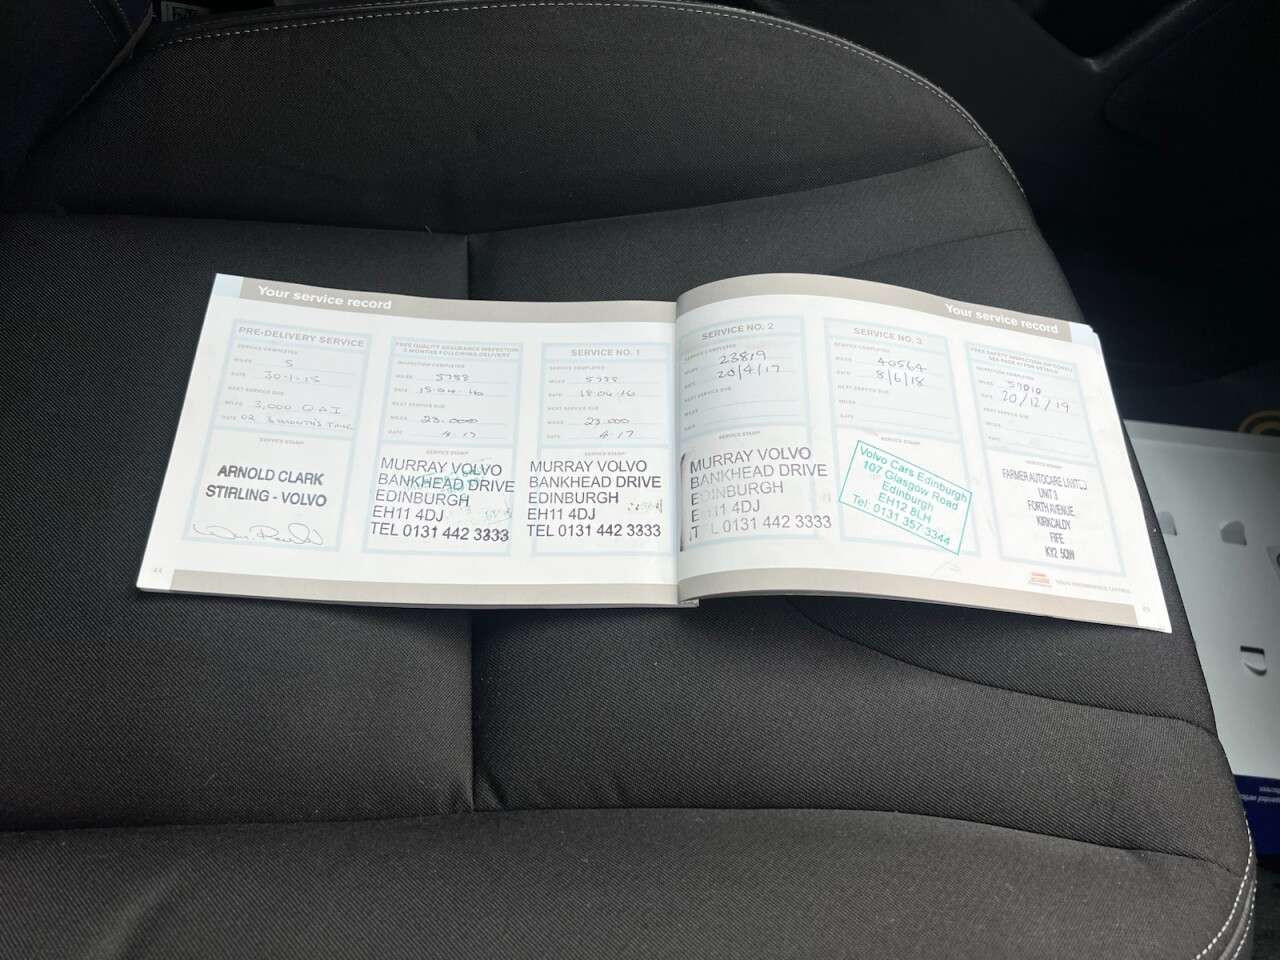 Your service record
PRE-DELIVERY SERVICE
SERVICE COMPLETED
MILES 5
DATE 30-1-15
NEXT SERVICE DUE
MILES 3,000 Q.A.I
DATE OR 3 MONTHS TIME
SERVICE STAMP
ARNOLD CLARK
STIRLING - VOLVO
44
FREE QUALITY ASSURANCE INSPECTION
3 MONTHS FOLLOWING DELIVERY
INSPECTION COMPLETED
MILES
DATE 18.04.16
NEXT SERVICE DUE
MILES 23.000
DATE 4.17
SERVICE STAMP
MURRAY VOLVO
BANKHEAD DRIVE
EDINBURGH
EH11 4DJ
TEL 0131 442 3333
SERVICE NO. 1
SERVICE COMPLETED
MILES
DATE 18.04.16
NEXT SERVICE DUE
MILES 23.000
DATE 4.17
SERVICE STAMP
MURRAY VOLVO
BANKHEAD DRIVE
EDINBURGH
EH11 4DJ
TEL 0131 442 3333
Your service record
SERVICE NO. 2
SERVICE COMPLETED
MILES 23819
DATE 20/4/17
NEXT SERVICE DUE
MILES
DATE
SERVICE STAMP
MURRAY VOLVO
BANKHEAD DRIVE
EDINBURGH
EH11 4DJ
TEL 0131 442 3333
SERVICE NO. 3
SERVICE COMPLETED
MILES 40564
DATE 8/6/18
NEXT SERVICE DUE
MILES
DATE
SERVICE STAMP
Volvo Cars Edinburgh
107 Glasgow Road
Edinburgh
EH12 8LH
Tel: 0131 357 3344
FREE SAFETY INSPECTION (OPTIONAL)
INSPECTION COMPLETED
MILES 57010
DATE 20/12/19
NEXT SERVICE DUE
MILES
DATE
SERVICE STAMP
FARMER AUTOCARE LIMITED
UNIT 3
FORTH AVENUE
KIRKCALDY
FIFE